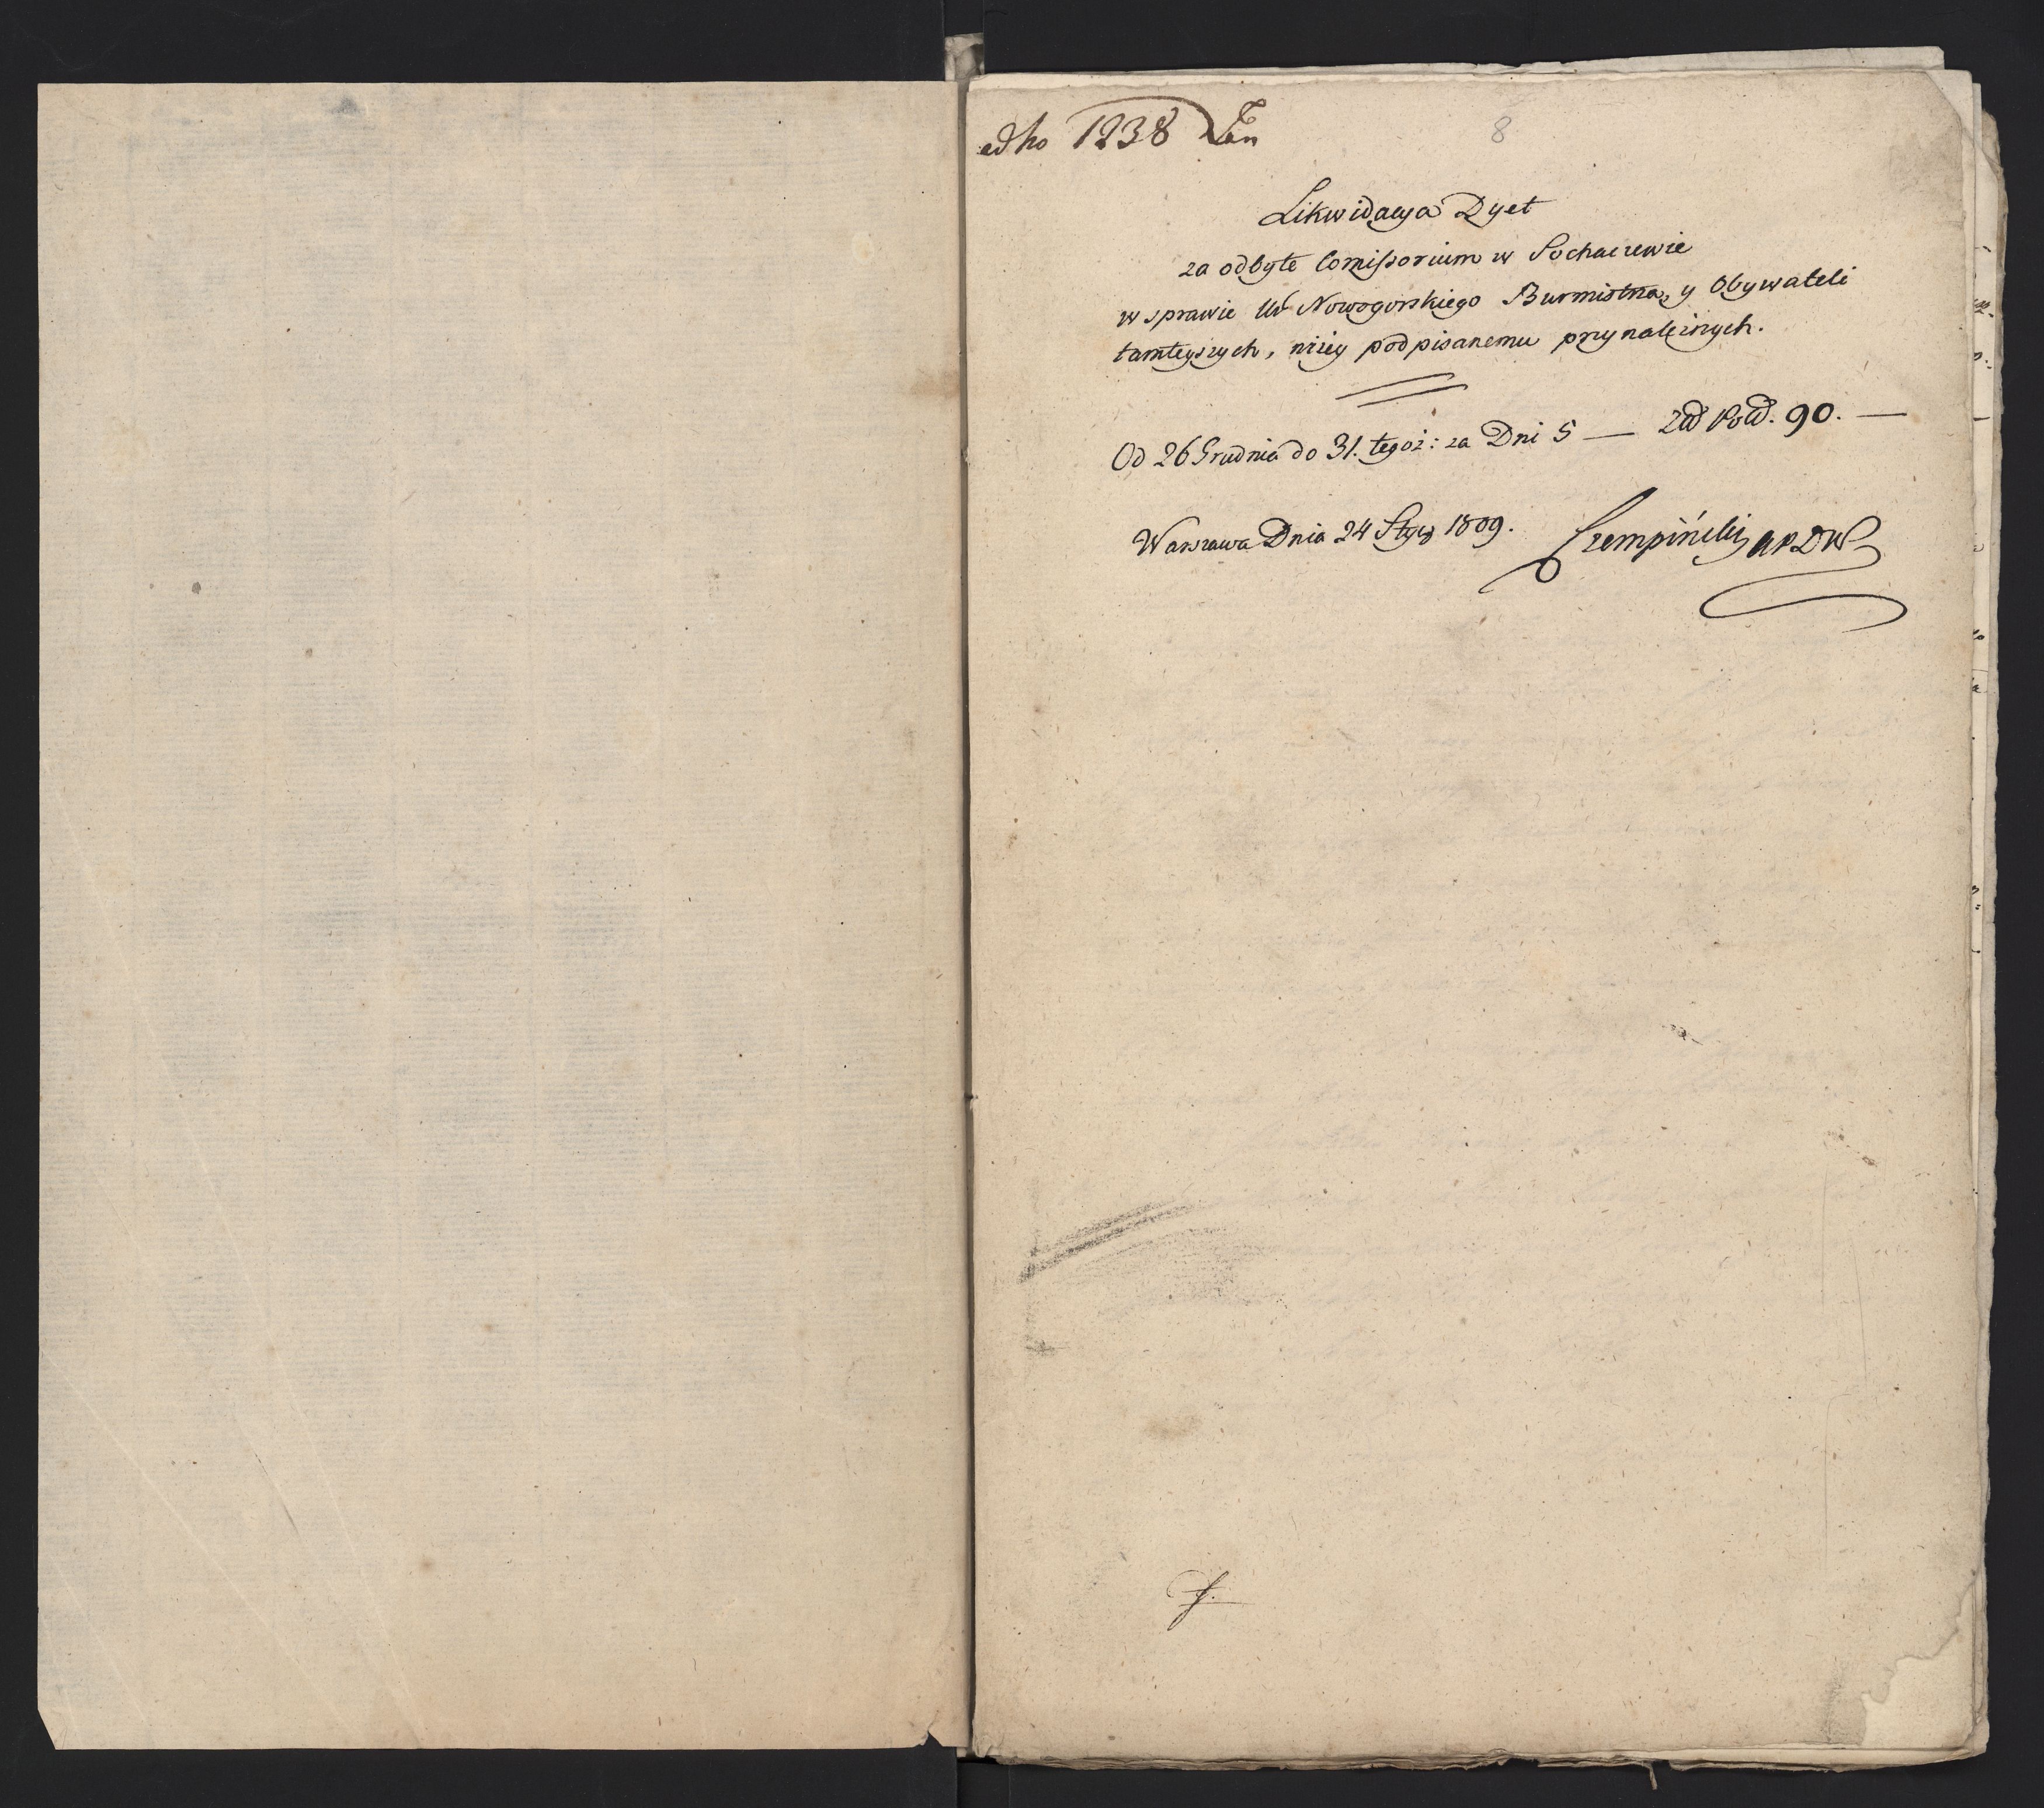 ad No 1238 Jan
8
Likwidacya Dyet
za odbyte Comissorium w Sochaczewie
w sprawie Ur Nowogorskiego Burmistrza, y Obywateli
tamteyszych, niżey podpisanemu przynależnych.
Od 26 Grudnia do 31. tegoż: za Dni 5 — Złł Poll. 90. —
Warszawa Dnia 24 Stycz 1809. Szempiński